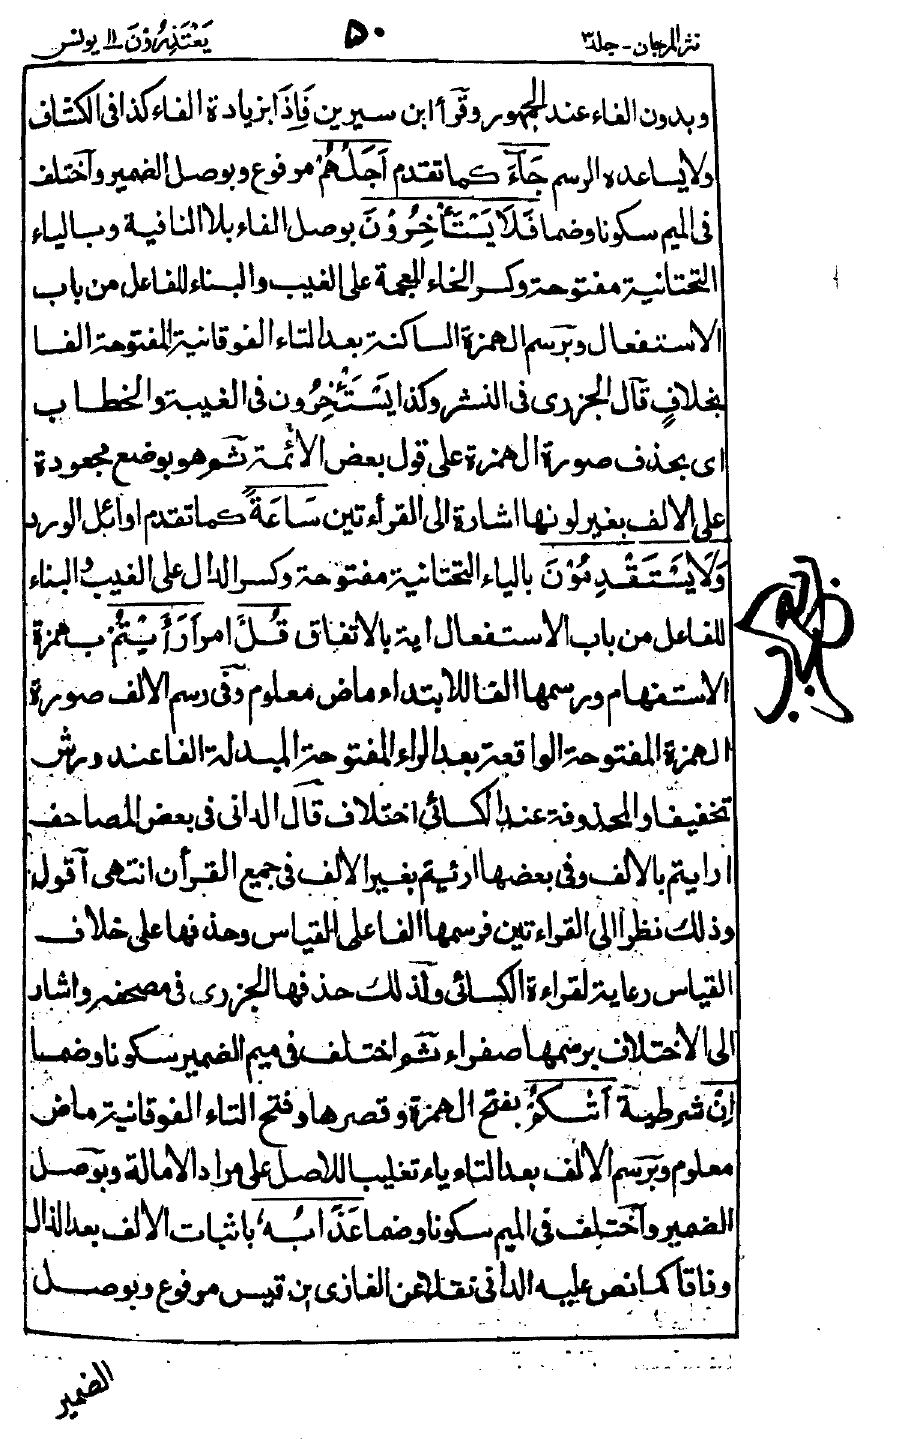 نثر المرجان - جلد ٣
۵۰
يَعْتَذِرُوْنَ ١١ يونس
وبدون الفاء عند الجمهور وقرأ ابن سيرين فَاِذَا بزيادة الفاء كذا فى الكشاف
ولا يساعده الرسم جَآءَ كما تقدم اَجَلُهُمْ مرفوع وبوصل الضمير واختلف
فى الميم سكونا وضما فَلَا يَسْتَأْخِرُوْنَ بوصل الفاء بلا النافية وبالياء
التحتانية مفتوحة وكسر الخاء المعجمة على الغيب والبناء للفاعل من باب
الاستفعال وبرسم الهمزة الساكنة بعد التاء الفوقانية المفتوحة الفا
بخلافٍ قال الجزرى فى النشر وكذا يَسْتَأْخِرُون فى الغيبة والخطاب
اى بحذف صورة الهمزة على قول بعض الائمة ثم هو بوضع مجعودة
على الالف بغير لونها اشارة الى القرأتين سَاعَةً كما تقدم اوائل الورد
وَلَا يَسْتَقْدِمُوْنَ بالياء التحتانية مفتوحة وكسر الدال على الغيب والبناء
للفاعل من باب الاستفعال اية بالاتفاق قُلْ امر اَرَأَيْتُمْ بهمزة
الاستفهام ورسمها الفا للابتداء ماض معلوم وفى رسم الالف صورة
الهمزة المفتوحة الواقعة بعد الراء المفتوحة المبدلة الفا عند ورش
تخفيفا والمحذوفة عند الكسائى اختلاف قال الدانى فى بعض المصاحف
ارايتم بالالف وفى بعضها اريتم بغير الالف فى جميع القرأن انتهى اقول
وذلك نظرا الى القراءتين فرسمها الفا على القياس وحذفها على خلاف
القياس رعاية لقراءة الكسائى ولذلك حذفها الجزرى فى مصحفه واشار
الى الاختلاف برسمها صفراء ثم اختلف فى ميم الضمير سكونا وضما
اِنْ شرطية اَتٰىكُمْ بفتح الهمزة وقصرها وفتح التاء الفوقانية ماض
معلوم وبرسم الالف بعد التاء ياء تغليبا للاصل على مراد الامالة وبوصل
الضمير واختلف فى الميم سكونا وضما عَذَابُهٗ باثبات الالف بعد الذال
وفاقا كما نص عليه الدانى نقلا عن الغازى بن قيس مرفوع وبوصل
الضمير